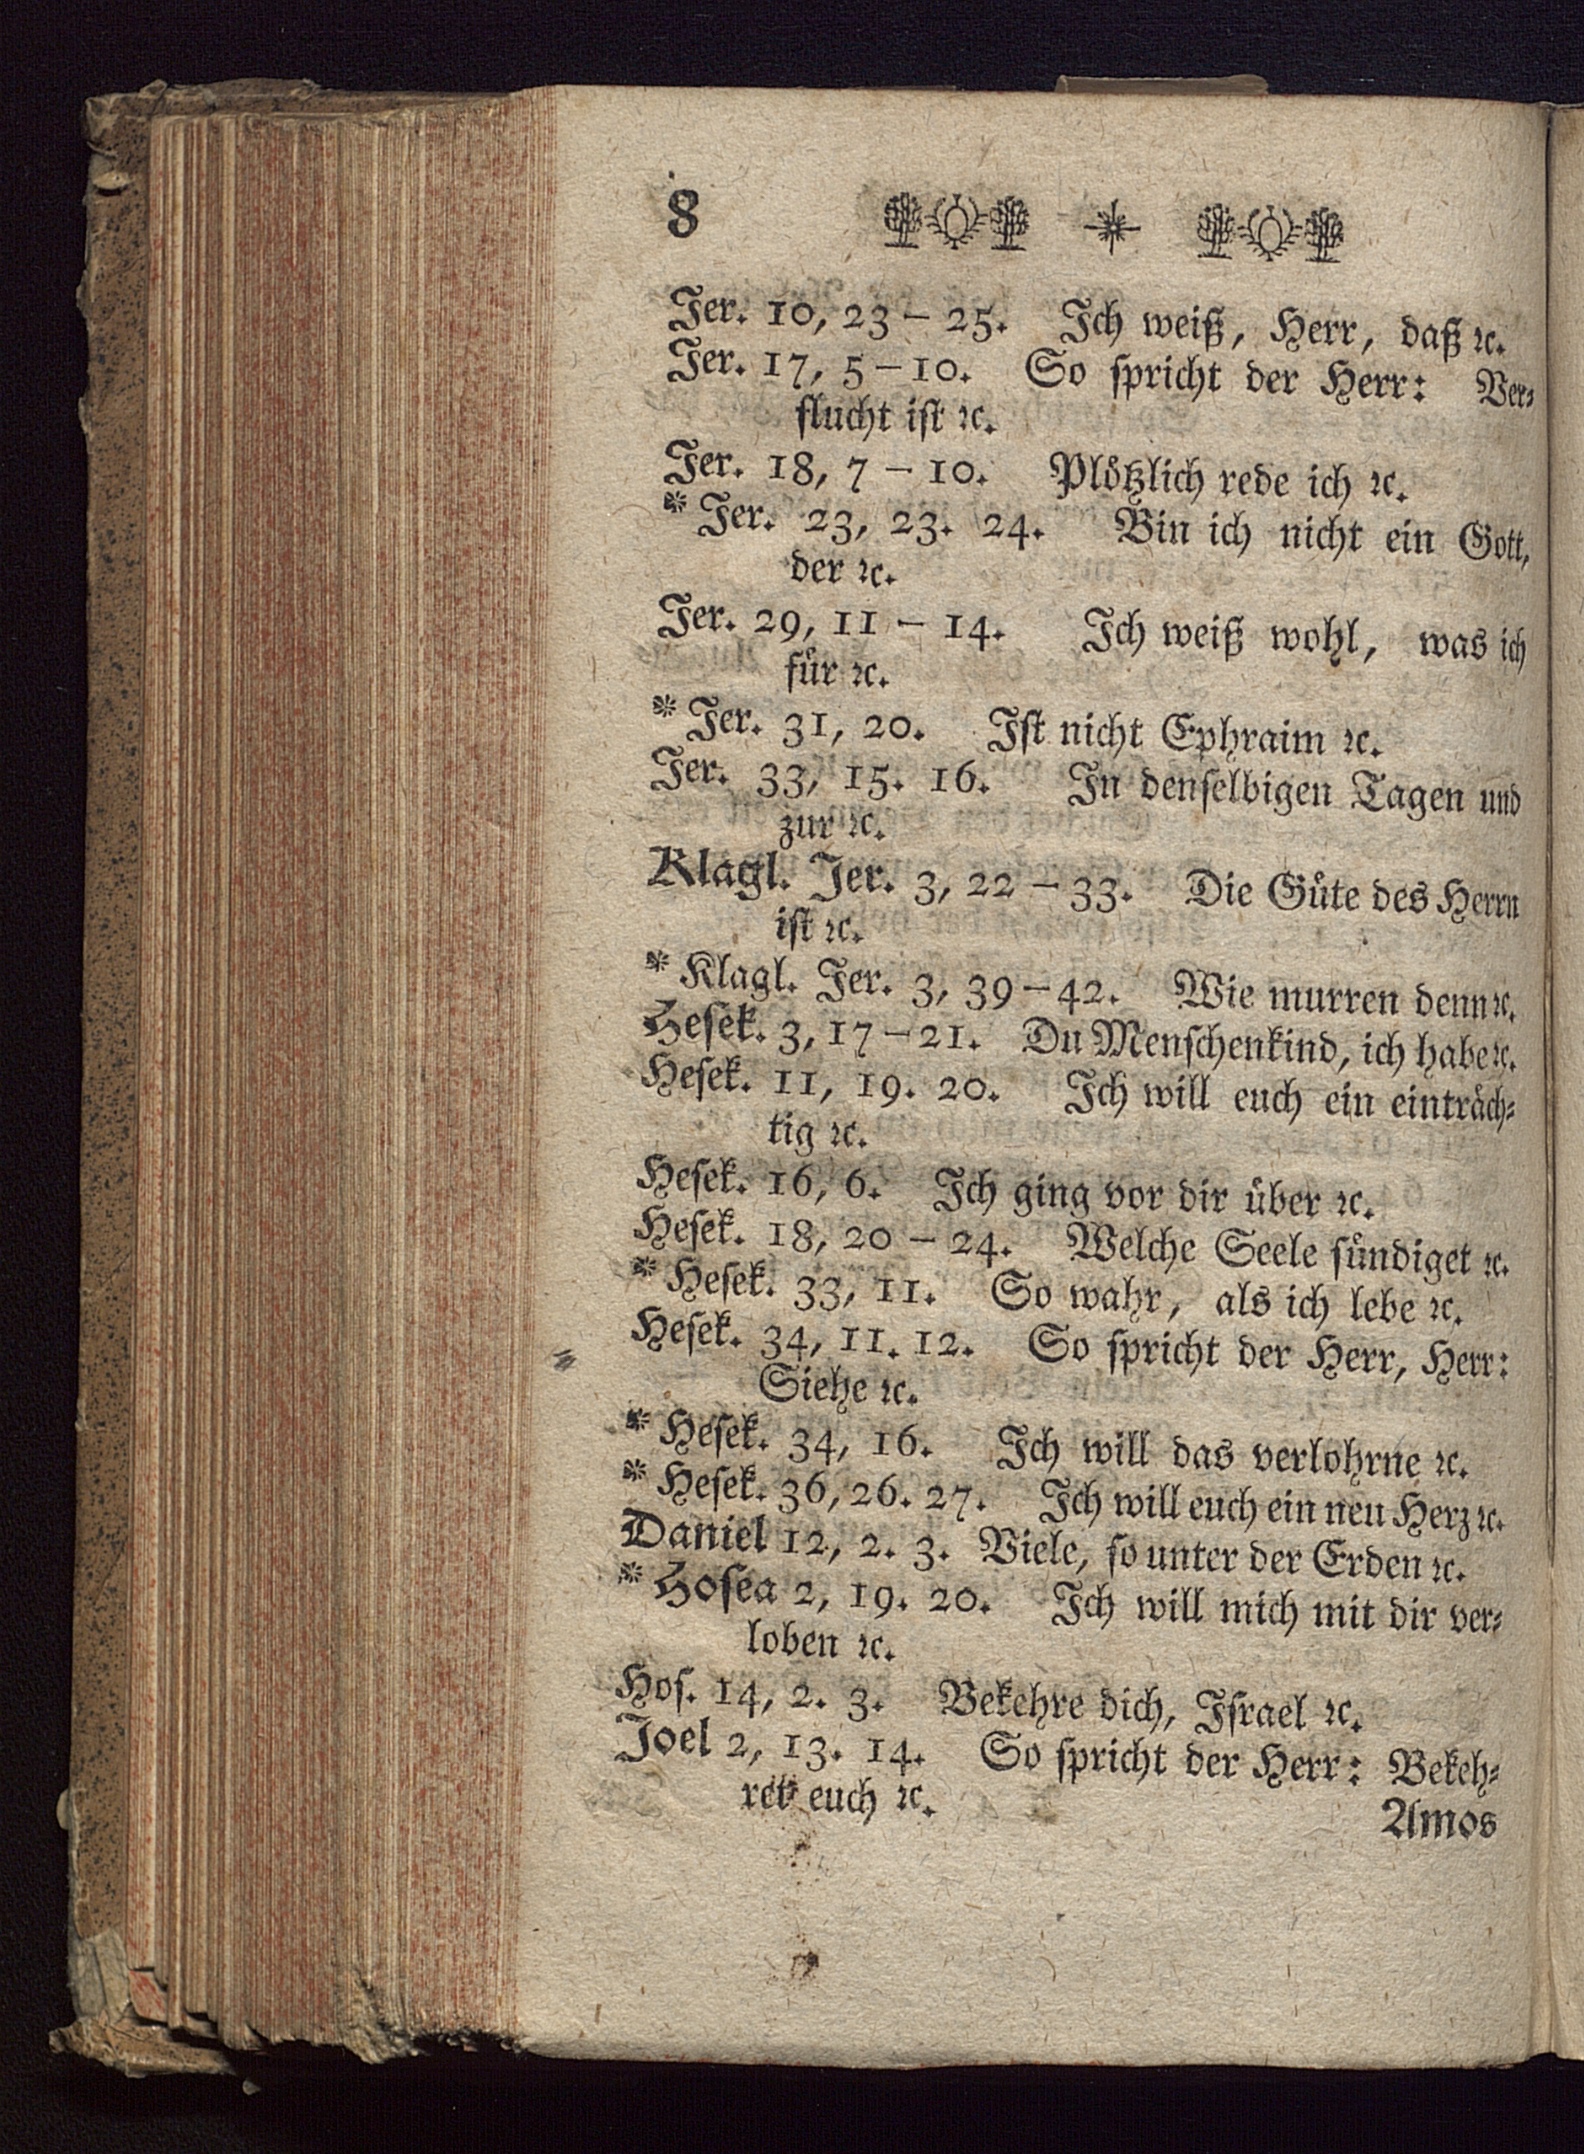 8
Jer. 10, 23 – 25. Ich weiß, Herr, daß ꝛc.
Jer. 17, 5 – 10. So ſpricht der Herr: Ver⸗
flucht iſt ꝛc.
Jer. 18, 7 – 10. Ploͤtzlich rede ich ꝛc.
* Jer. 23, 23. 24. Bin ich nicht ein Gott,
der ꝛc.
Jer. 29, 11 – 14. Ich weiß wohl, was ich
fuͤr ꝛc.
* Jer. 31, 20. Iſt nicht Ephraim ꝛc.
Jer. 33, 15. 16. In denſelbigen Tagen und
zur ꝛc.
Klagl. Jer. 3, 22 – 33. Die Guͤte des Herrn
iſt ꝛc.
* Klagl. Jer. 3, 39 – 42. Wie murren denn ꝛc.
Heſek. 3, 17 – 21. Du Menſchenkind, ich habe ꝛc.
Heſek. 11, 19. 20. Ich will euch ein eintraͤch⸗
tig ꝛc.
Heſek. 16, 6. Ich ging vor dir uͤber ꝛc.
Heſek. 18, 20 – 24. Welche Seele ſuͤndiget ꝛc.
* Heſek. 33, 11. So wahr, als ich lebe ꝛc.
Heſek. 34, 11. 12. So ſpricht der Herr, Herr:
Siehe ꝛc.
* Heſek. 34, 16. Ich will das verlohrne ꝛc.
* Heſek. 36, 26. 27. Ich will euch ein neu Herz ꝛc.
Daniel 12, 2. 3. Viele, ſo unter der Erden ꝛc.
* Hoſea 2, 19. 20. Ich will mich mit dir ver⸗
loben ꝛc.
Hoſ. 14, 2. 3. Bekehre dich, Iſrael ꝛc.
Joel 2, 13. 14. So ſpricht der Herr: Bekeh⸗
ret euch ꝛc.
Amos